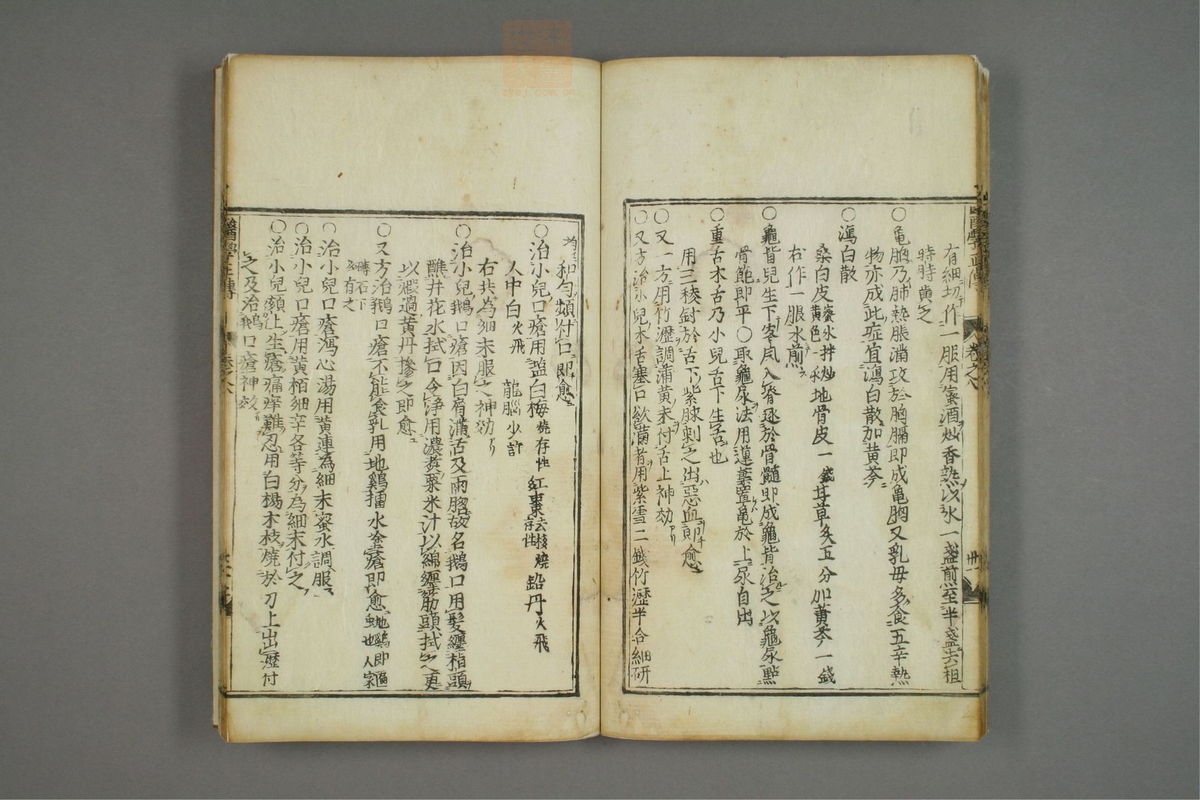 右細切作一服用蜜酒炒香熟浅水一盞煎至半盞去粗
時時黄之
○亀胸乃肺熱脹滿攻於胸膈即成亀胸又乳母多食五辛熱
物亦成此症宜瀉白散加黄芩
○瀉白散
桑白皮 地骨皮一錢甘草炙五分加黄芩一錢
右作一服水煎
○龜背兒生下客風入脊逐於骨髓即成龜背治之以龜尿點
骨節即平○取龜尿法用蓮葉置亀於上尿自出
○重舌木舌乃小兒舌下生舌也
用三稜針於舌下紫脉刺之出惡血即愈
○又一方用竹瀝調蒲黄末付舌上神効
○又方治小兒木舌塞口欲滿者用紫雪二錢竹瀝半合細研
和匀頻付口即愈
○治小兒口瘡用盬白梅燒存性 紅棗去核燒存性 鉛丹火飛
人中白火飛 龍腦少許
右共為細末服之神効
○治小兒鵝口瘡因白屑滿舌及兩腮故名鵝口用髮纏指頭
醮井花水拭口令浄用濃煮粟米汁以綿纏筋頭拭之更
以飛過黄丹摻之即愈
○又方治鵝口瘡不能食乳用地鷄擂水塗瘡即愈地鷄即䘌虫也人家
磚石下多有之
○治小兒口瘡瀉心湯用黄連為細末蜜水調服
○治小兒口瘡用黄栢細辛各等分為細末付之
○治小兒頭上生瘡痛痒難忍用白楊木枝燒於刀上出瀝付
之及治鵝口瘡神效
醫學正傳
卷之八